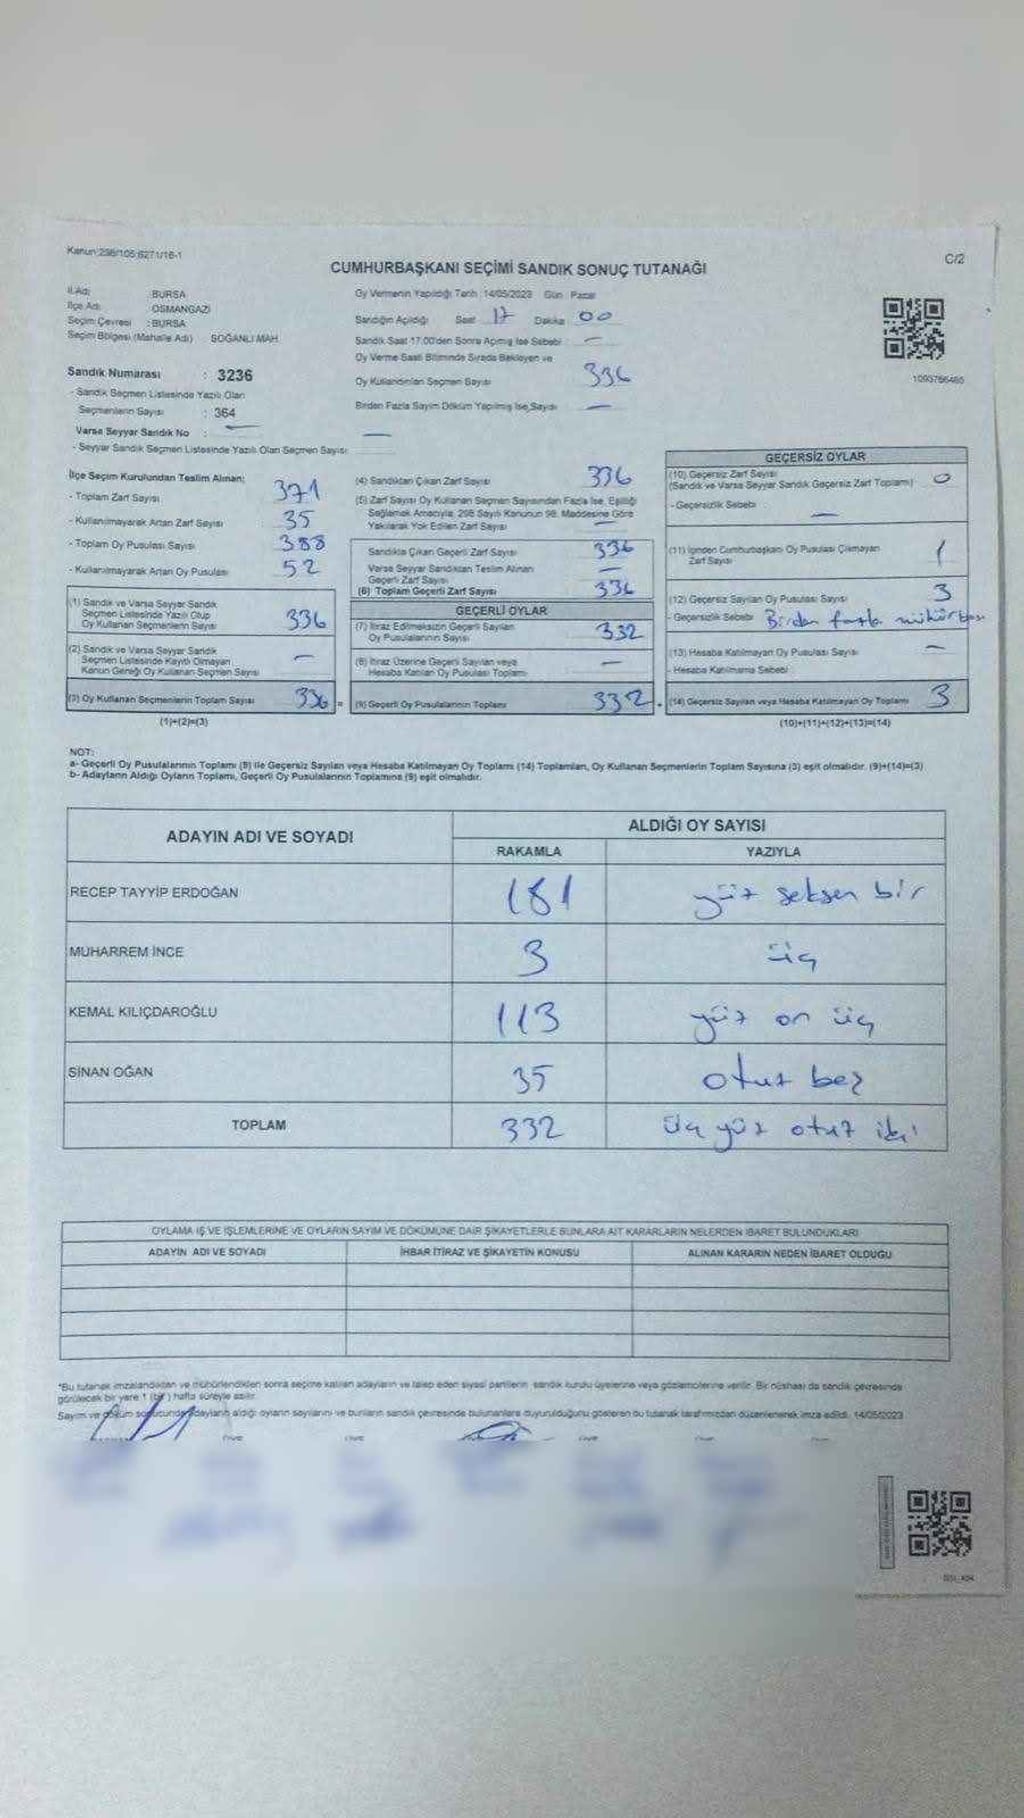 Kanun:298/105;6271/16-1
C/2
CUMHURBAŞKANI SEÇİMİ SANDIK SONUÇ TUTANAĞI
İl Adı : BURSA
İlçe Adı : OSMANGAZİ
Seçim Çevresi : BURSA
Seçim Bölgesi (Mahalle Adı) SOĞANLI MAH.
Sandık Numarası : 3236
- Sandık Seçmen Listesinde Yazılı Olan
Seçmenlerin Sayısı : 364
Varsa Seyyar Sandık No : —
- Seyyar Sandık Seçmen Listesinde Yazılı Olan Seçmen Sayısı: —
Oy Vermenin Yapıldığı Tarih :14/05/2023 Gün : Pazar
Sandığın Açıldığı Saat : 17 Dakika : 00
Sandık Saat 17.00'den Sonra Açmış İse Sebebi : —
Oy Verme Saati Bitiminde Sırada Bekleyen ve
Oy Kullandırılan Seçmen Sayısı 336
Birden Fazla Sayım Döküm Yapılmış İse,Sayısı —
1093766465
İlçe Seçim Kurulundan Teslim Alınan;
- Toplam Zarf Sayısı : 371
- Kullanılmayarak Artan Zarf Sayısı : 35
- Toplam Oy Pusulası Sayısı : 388
- Kullanılmayarak Artan Oy Pusulası : 52
(1) Sandık ve Varsa Seyyar Sandık
Seçmen Listesinde Yazılı Olup
Oy Kullanan Seçmenlerin Sayısı 336
(2) Sandık ve Varsa Seyyar Sandık
Seçmen Listesinde Kayıtlı Olmayan
Kanun Gereği Oy Kullanan Seçmen Sayısı —
(3) Oy Kullanan Seçmenlerin Toplam Sayısı 336
(1)+(2)=(3)
(4) Sandıktan Çıkan Zarf Sayısı 336
(5) Zarf Sayısı Oy Kullanan Seçmen Sayısından Fazla İse, Eşitliği
Sağlamak Amacıyla, 298 Sayılı Kanunun 98. Maddesine Göre
Yakılarak Yok Edilen Zarf Sayısı —
Sandıkta Çıkan Geçerli Zarf Sayısı 336
Varsa Seyyar Sandıktan Teslim Alınan
Geçerli Zarf Sayısı —
(6) Toplam Geçerli Zarf Sayısı 336
GEÇERLİ OYLAR
(7) İtiraz Edilmeksizin Geçerli Sayılan
Oy Pusulalarının Sayısı 332
(8) İtiraz Üzerine Geçerli Sayılan veya
Hesaba Katılan Oy Pusulası Toplamı —
= (9) Geçerli Oy Pusulalarının Toplamı 332
GEÇERSİZ OYLAR
(10) Geçersiz Zarf Sayısı
(Sandık ve Varsa Seyyar Sandık Geçersiz Zarf Toplamı) 0
- Geçersizlik Sebebi —
(11) İçinden Cumhurbaşkanı Oy Pusulası Çıkmayan
Zarf Sayısı 1
(12) Geçersiz Sayılan Oy Pusulası Sayısı 3
- Geçersizlik Sebebi Birden fazla mühür
(13) Hesaba Katılmayan Oy Pusulası Sayısı —
- Hesaba Katılmama Sebebi
+ (14) Geçersiz Sayılan veya Hesaba Katılmayan Oy Toplamı 3
(10)+(11)+(12)+(13)=(14)
NOT:
a- Geçerli Oy Pusulalarının Toplamı (9) ile Geçersiz Sayılan veya Hesaba Katılmayan Oy Toplamı (14) Toplamları, Oy Kullanan Seçmenlerin Toplam Sayısına (3) eşit olmalıdır. (9)+(14)=(3)
b- Adayların Aldığı Oyların Toplamı, Geçerli Oy Pusulalarının Toplamına (9) eşit olmalıdır.
ADAYIN ADI VE SOYADI
ALDIĞI OY SAYISI
RAKAMLA YAZIYLA
RECEP TAYYİP ERDOĞAN 181 yüz seksen bir
MUHARREM İNCE 3 üç
KEMAL KILIÇDAROĞLU 113 yüz on üç
SİNAN OĞAN 35 otuz beş
TOPLAM 332 üç yüz otuz iki
OYLAMA İŞ VE İŞLEMLERİNE VE OYLARIN SAYIM VE DÖKÜMÜNE DAİR ŞİKAYETLERLE BUNLARA AİT KARARLARIN NELERDEN İBARET BULUNDUKLARI
ADAYIN ADI VE SOYADI İHBAR İTİRAZ VE ŞİKAYETİN KONUSU ALINAN KARARIN NEDEN İBARET OLDUĞU
*Bu tutanak imzalandıktan ve mühürlendikten sonra seçime katılan adayların ve talep eden siyasi partilerin sandık kurulu üyelerine veya gözlemcilerine verilir. Bir nüshası da sandık çevresinde
görülecek bir yere 1 (bir) hafta süreyle asılır.
Sayım ve döküm sonucunda adayların aldığı oyların sayılarını ve bunların sandık çevresinde bulunanlara duyurulduğunu gösteren bu tutanak tarafımızdan düzenlenerek imza edildi. 14/05/2023